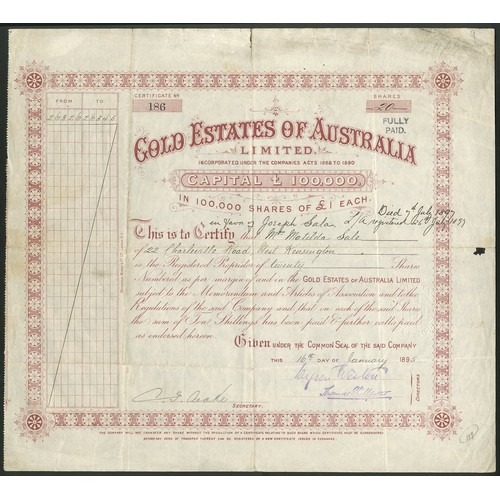 CERTIFICATE No
186
SHARES
20
FULLY
PAID.
FROM TO
GOLD ESTATES OF AUSTRALIA
LIMITED.
INCORPORATED UNDER THE COMPANIES ACTS 1862 TO 1890
CAPITAL £100,000,
IN 100,000 SHARES OF £1 EACH.
Died 7th July 1897
in favor of Joseph Sala
This is to Certify that Mrs Matilda Sala
of 22 Charleville Road West Kensington
is the Registered Proprietor of twenty Shares
Numbered as per margin of and in the GOLD ESTATES OF AUSTRALIA LIMITED
subject to the Memorandum and Articles of Association and to the
Regulations of the said Company and that on each of the said Shares
the sum of Ten Shillings has been paid & further calls paid
as endorsed hereon.
Given UNDER THE COMMON SEAL OF THE SAID COMPANY
THIS 16th DAY OF January 1895
DIRECTORS
SECRETARY.
THE COMPANY WILL NOT TRANSFER ANY SHARE WITHOUT THE PRODUCTION OF A CERTIFICATE RELATING TO SUCH SHARE WHICH CERTIFICATE MUST BE SURRENDERED
BEFORE ANY DEED OF TRANSFER CAN BE REGISTERED OR A NEW CERTIFICATE ISSUED IN EXCHANGE.